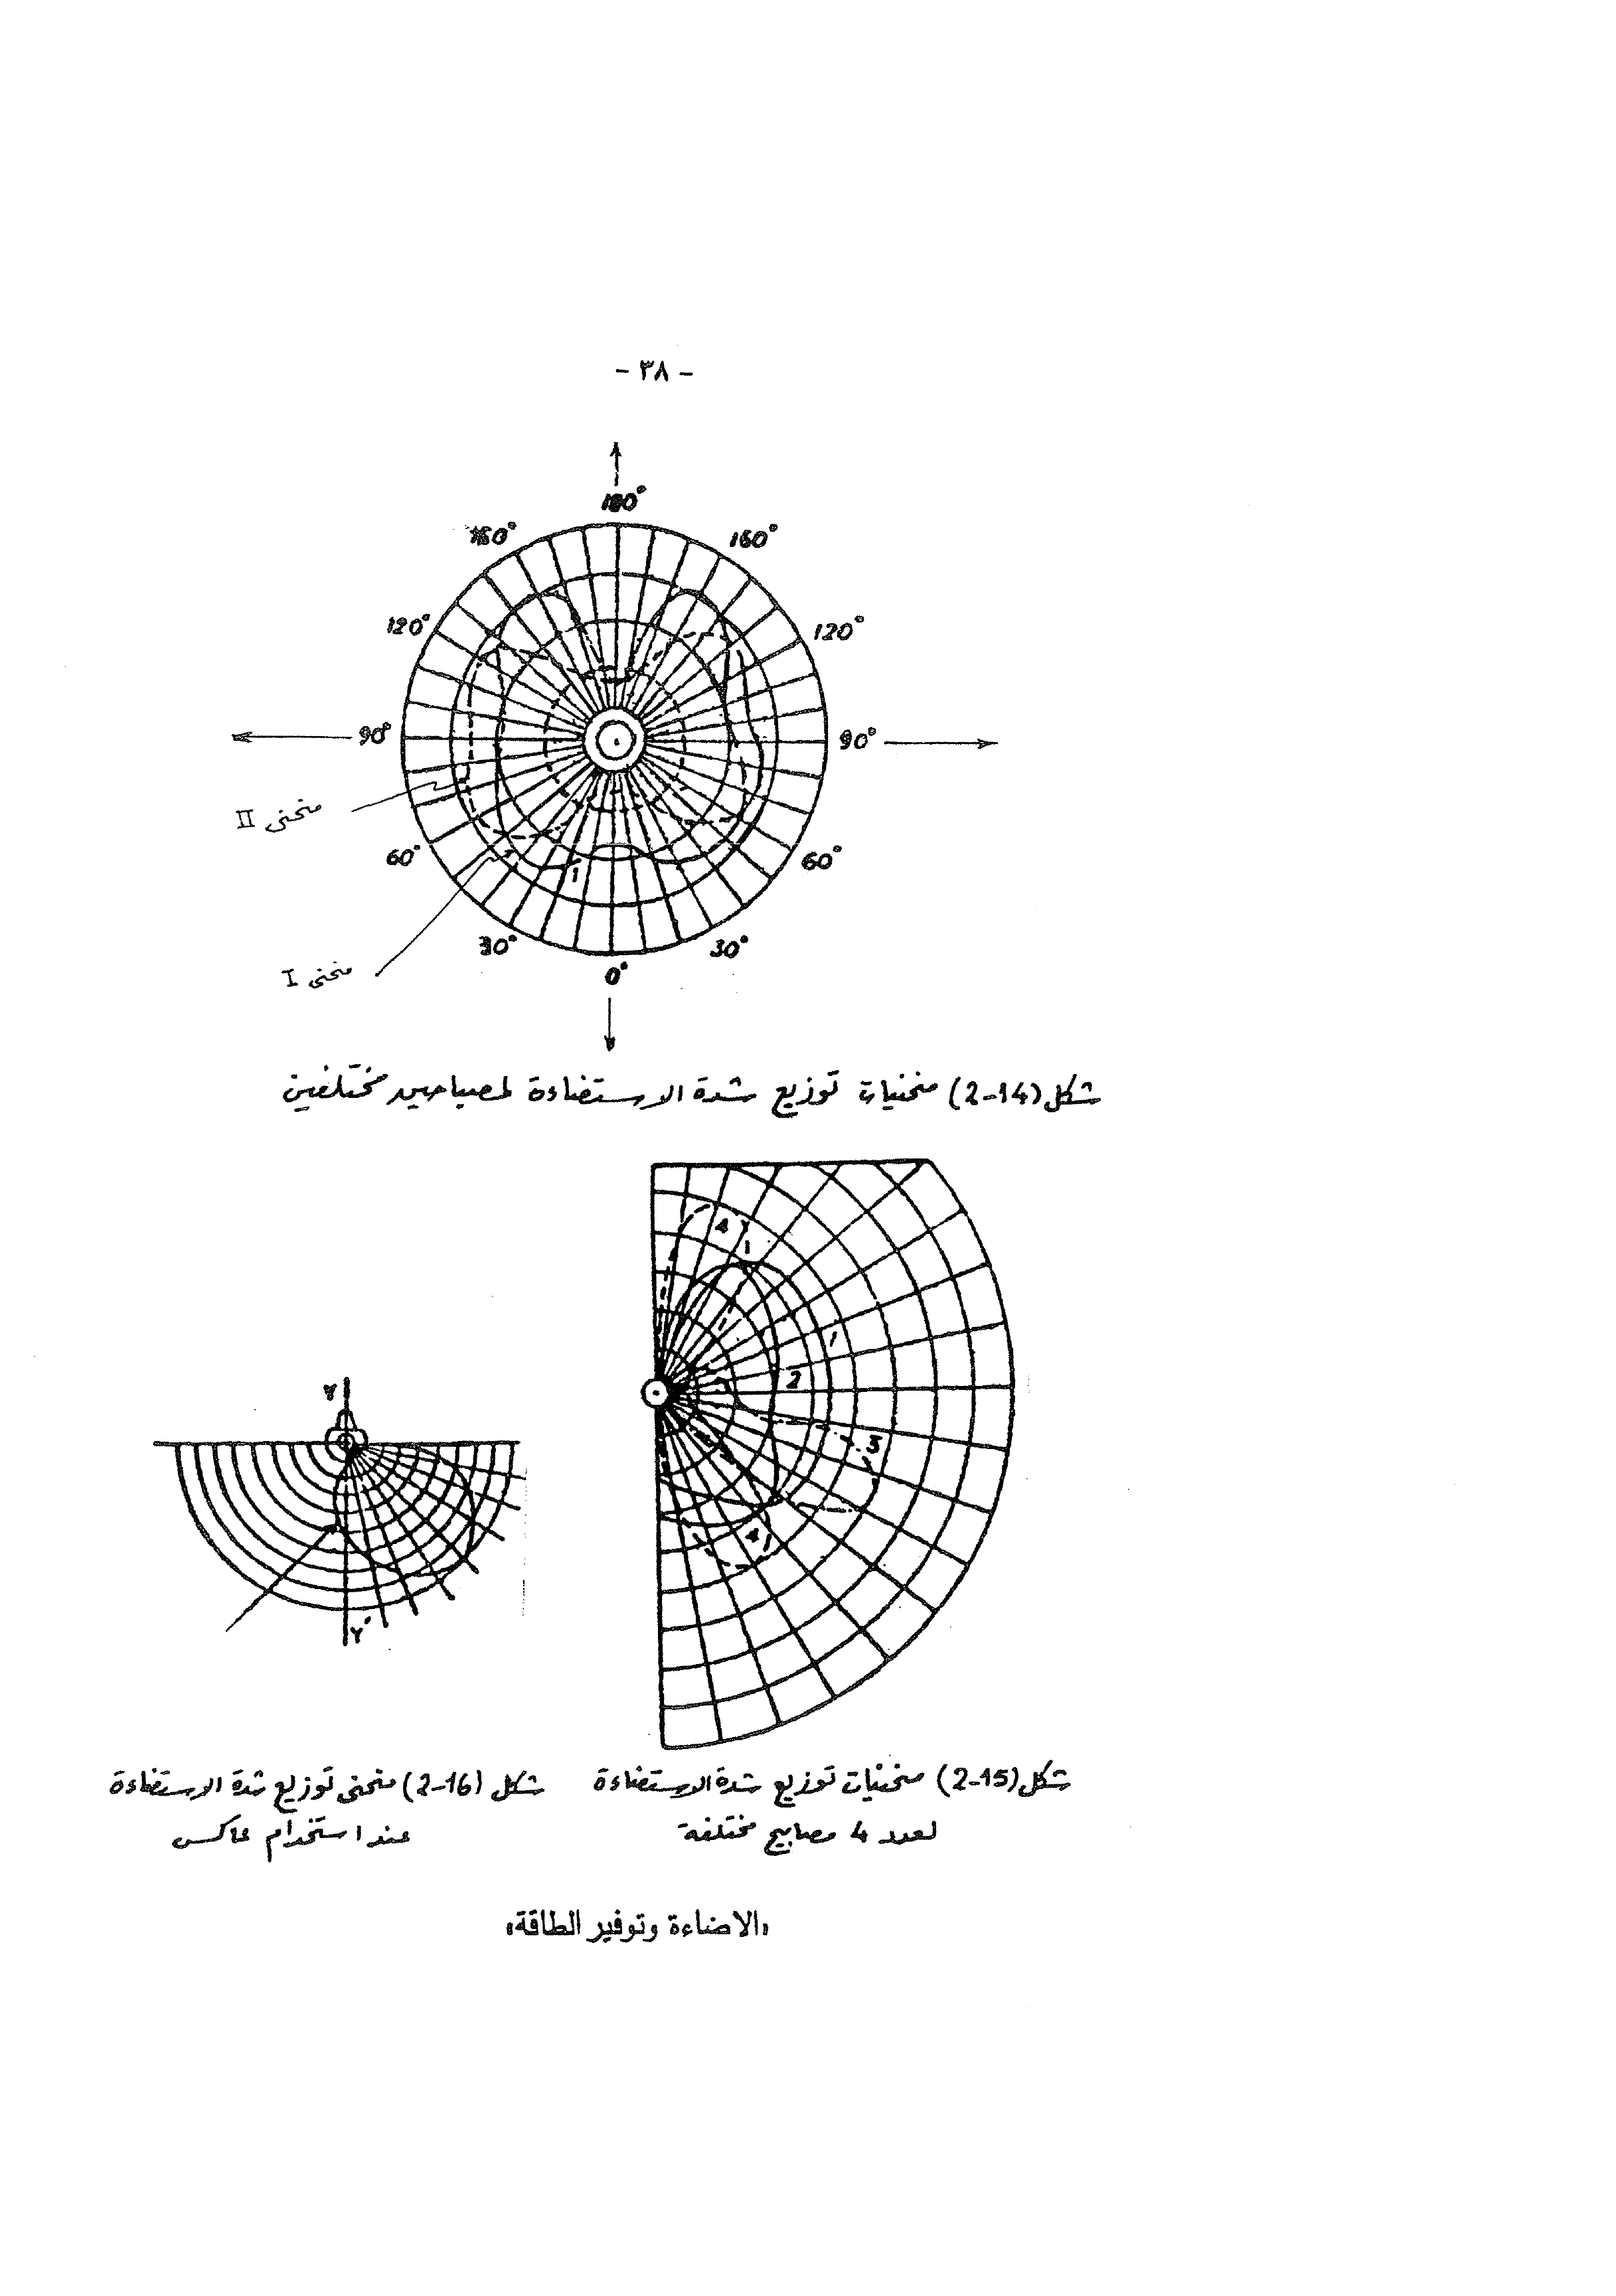 - ٣٨ -
180°
160°
160°
120°
120°
90°
90°
منحنى II
60°
60°
30°
30°
منحنى I
0°
شكل (2-14) منحنيات توزيع شدة الاستضاءة لمصباحين مختلفين
4
1
2
3
4
Y
Y'
شكل (2-15) منحنيات توزيع شدة الاستضاءة
لعدد 4 مصابيح مختلفة
شكل (2-16) منحنى توزيع شدة الاستضاءة
عند استخدام عاكس
«الاضاءة وتوفير الطاقة»